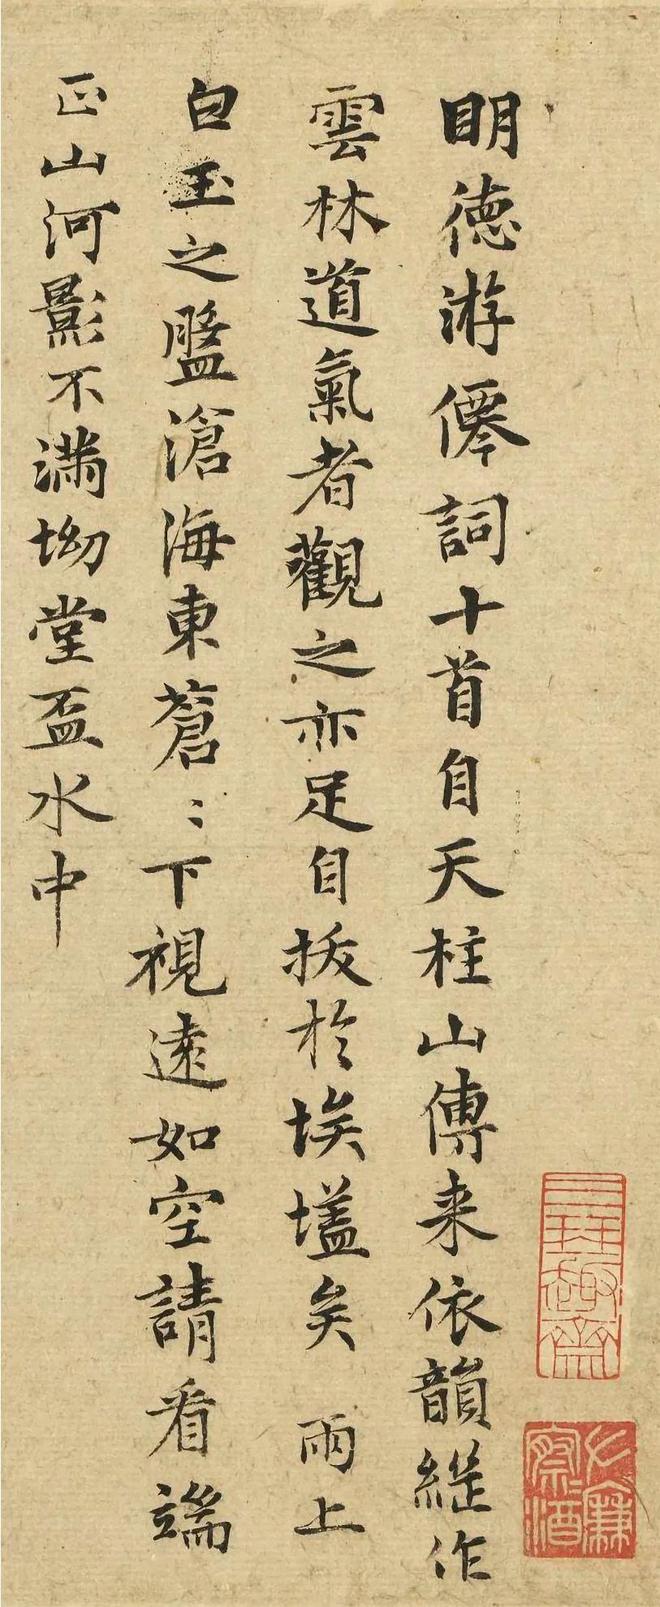 明德游僊詞十首自天柱山傳来依韻継作
雲林道氣者觀之亦足自拔於埃壒矣 雨上
白玉之盤滄海東蒼〻下視遠如空請看端
正山河影不滿坳堂盃水中